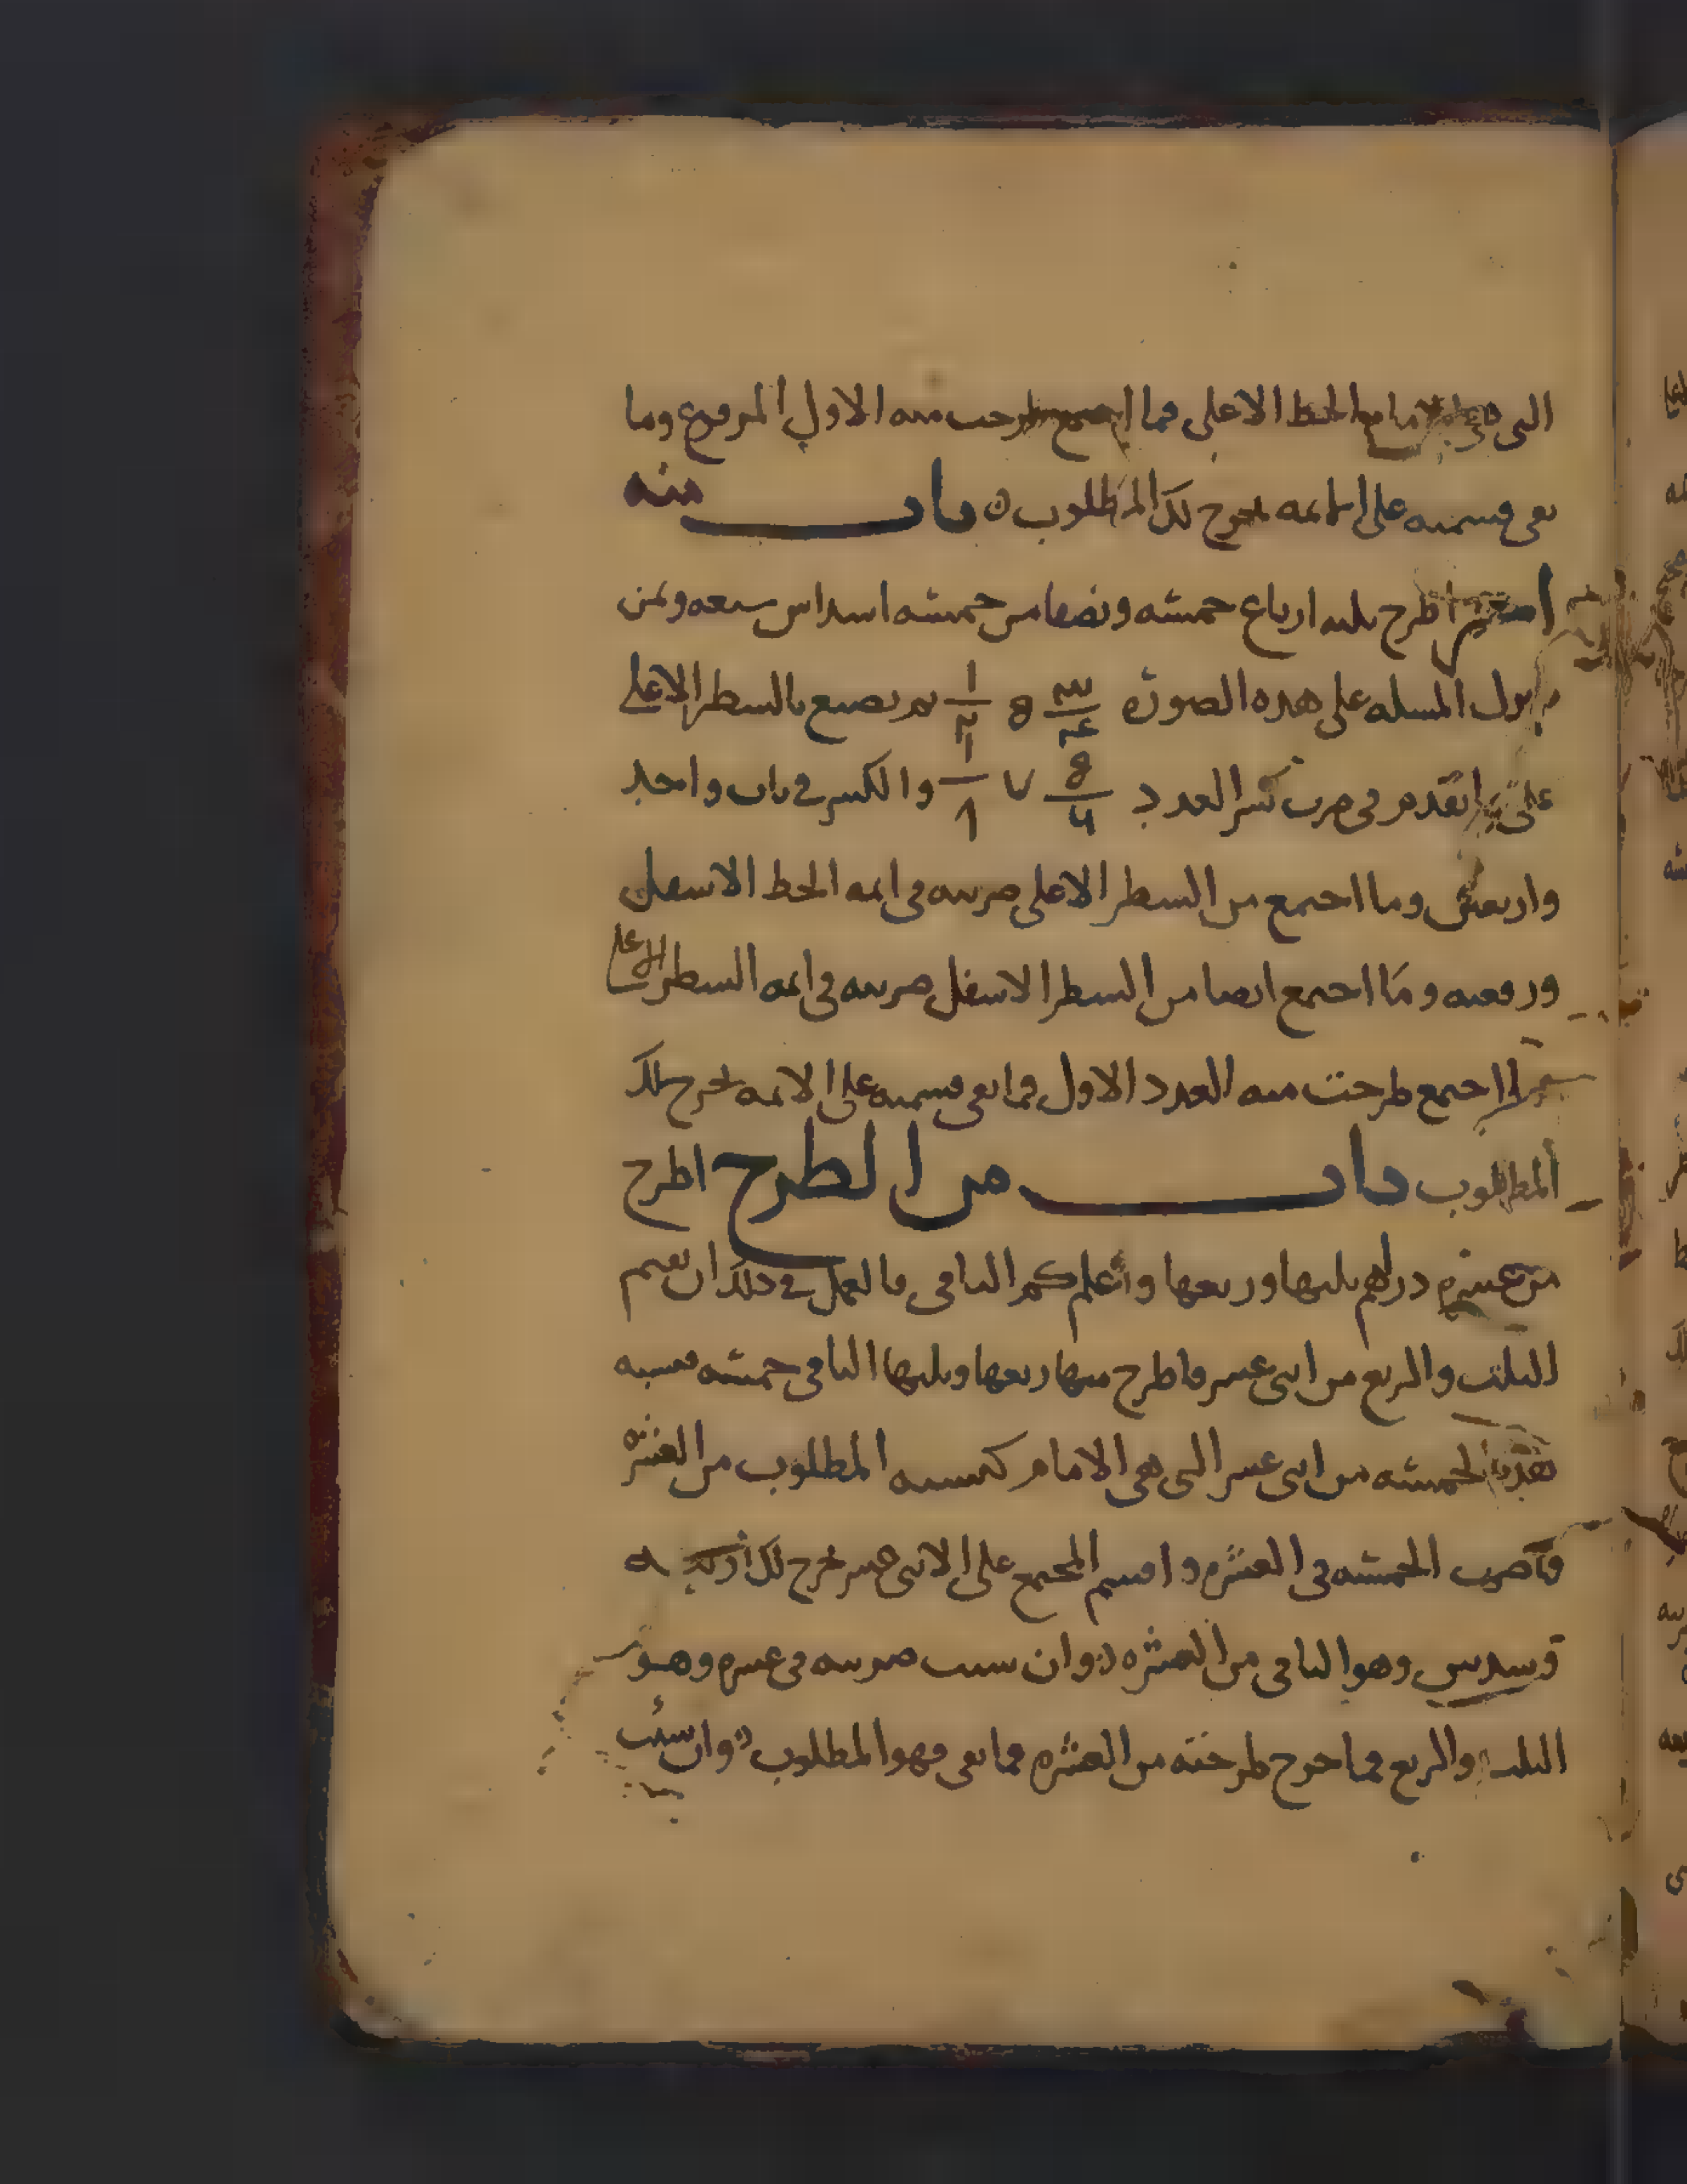 التى على امام الخط الاعلى فما اجتمع طرحت منه الاول المرفوع وما
بقى قسمته على ايمته يخرج لك المطلوب ه باب منه
اطرح ثلثه ارباع خمسه ونصفا من خمسه اسداس سبعه وثمن
نزل المسله على هذه الصورة ٣/٤ 8 ١/٢ ثم تصنع بالسطر الاعلى
على ما تقدم فى ضرب كسر العدد 8/٦ ٧ ١/٨ والكسر فى باب واحد
واربعين وما اجتمع من السطر الاعلى ضربته فى ايمه الخط الاسفل
ورفعته وما اجتمع ايضا من السطر الاسفل ضربته فى ايمه السطر الاعلى
فما اجتمع طرحت منه العدد الاول فما بقى قسمته على الايمه يخرج لك
المطلوب باب من الطرح اطرح
من عشره دراهم ثلثها وربعها واعلم كم الباقى فالعمل فى ذلك ان تقيم
الثلث والربع من اثنى عشر فاطرح منها ربعها وثلثها الباقى خمسه فنسبه
هذه الخمسه من اثنى عشر التى هى الامام كنسبه المطلوب من العشره
فاضرب الخمسه فى العشره واقسم المجتمع على الاثنى عشر يخرج لك اربعه
وسدس وهو الباقى من العشره ه وان شيت ضربته فى عشره وهو
الثلث والربع فما خرج طرحته من العشره فما بقى فهو المطلوب ه وان شيت